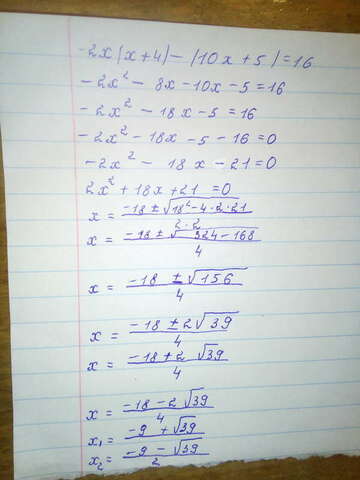 -2x(x+4)-(10x+5)=16
-2x²-8x-10x-5=16
-2x²-18x-5=16
-2x²-18x-5-16=0
-2x²-18x-21=0
2x²+18x+21=0
x=(-18±√(18²-4·2·21))/(2·2)
x=(-18±√(324-168))/4
x=(-18±√156)/4
x=(-18±2√39)/4
x=(-18+2√39)/4
x=(-18-2√39)/4
x₁=(-9+√39)/2
x₂=(-9-√39)/2